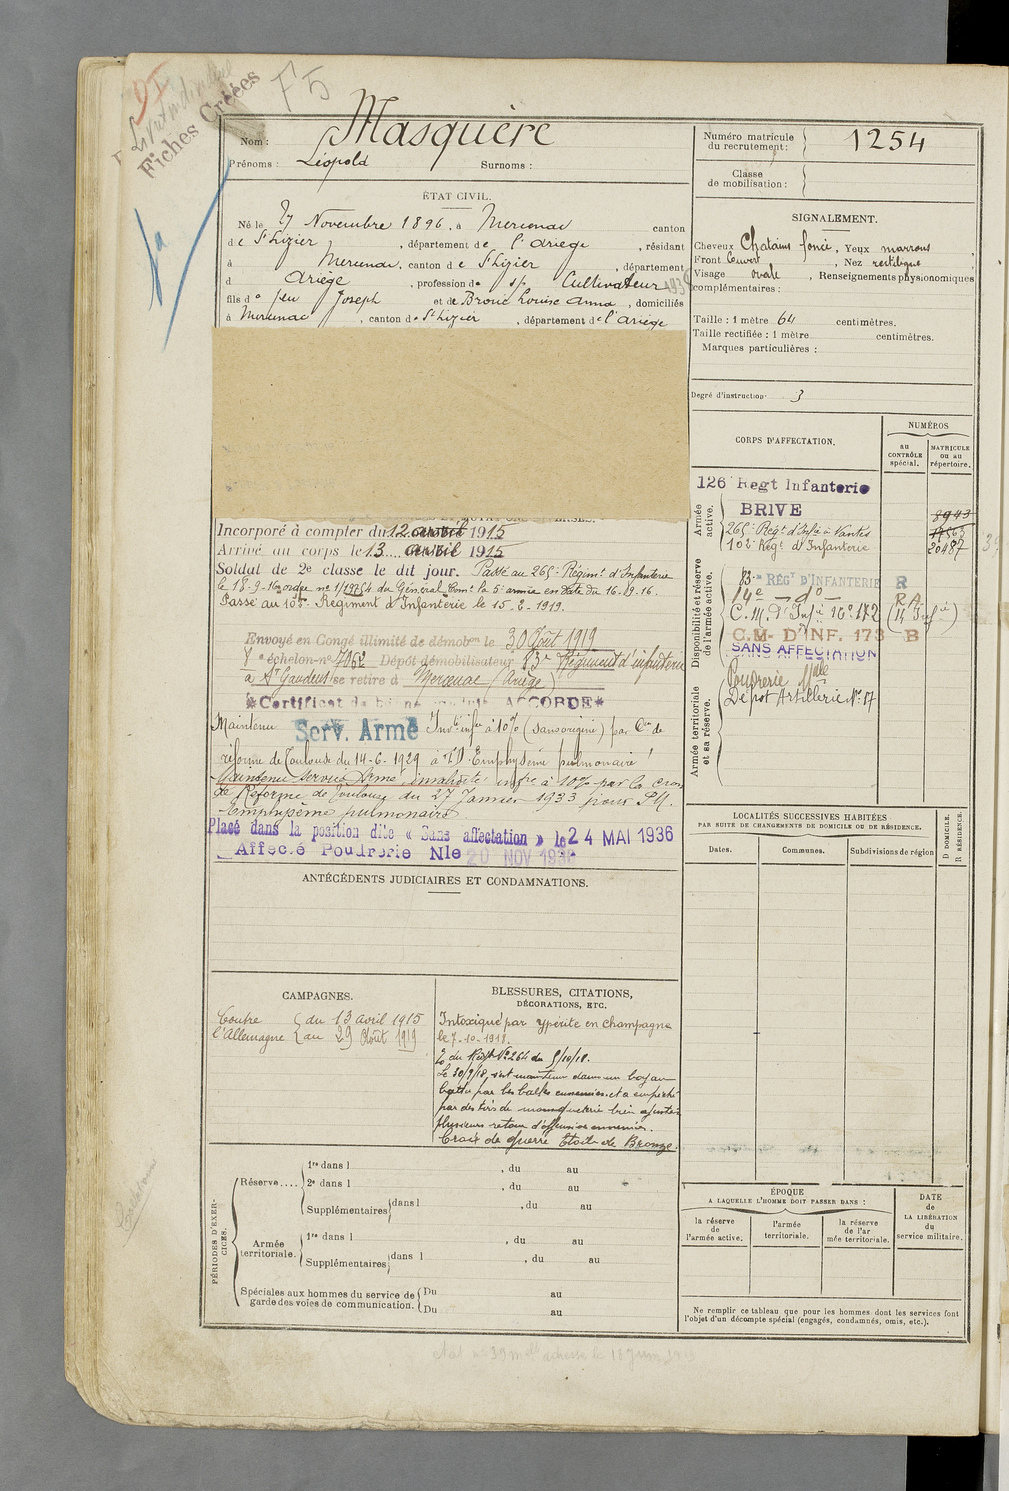 F5
Fiches Créées
Nom : Masquère
Prénoms : Léopold Surnoms :
ÉTAT CIVIL.
Né le 27 Novembre 1896, à Mercenac canton
de St Lizier, département de l'Ariège, résidant
à Mercenac, canton de St Lizier, département
d Ariège, profession de sp Cultivateur
fils de feu Joseph et de Broué Louise Anna, domiciliés
à Mercenac, canton de St Lizier, département de l'Ariège
Incorporé à compter du 12 avril 1915
Arrivé au corps le 13 avril 1915
Soldat de 2e classe le dit jour. Passé au 265e Régimt d'Infanterie
le 18-9-16 ordre no 1/19754 du Général Comt la 5e armée en date du 16.9.16.
Passé au 10e Régiment d'Infanterie le 15.8.1919.
Envoyé en Congé illimité de démobon le 30 Août 1919
8e échelon no 7062 Dépôt démobilisateur 83e Régiment d'infanterie
à St Gaudens se retire à Mercenac (Ariège)
*Certificat de bonne conduite ACCORDÉ*
Maintenu Serv. Armé Invté infre à 10% (sans origine) par Con de
réforme de Toulouse du 14-6-1929 Emphysème pulmonaire
Maintenu service armé, invalidité infre à 10% par la Cion
de Réforme de Toulouse du 27 Janvier 1933 pour
Emphysème pulmonaire
Placé dans la position dite « Sans affectation » le 24 MAI 1936
Affecté Poudrerie Nle 20 NOV 1936
ANTÉCÉDENTS JUDICIAIRES ET CONDAMNATIONS.
CAMPAGNES.
Contre l'Allemagne
du 13 avril 1915
au 29 Août 1919
BLESSURES, CITATIONS,
DÉCORATIONS, ETC.
Intoxiqué par ypérite en Champagne
le 7-10-1918.
O. du Régt No 264 du 9/10/18.
Le 30/9/18, s'est maintenu dans un boyau
battu par les balles ennemies et a empêché
par des tirs de mousqueterie bien ajustés
plusieurs retours d'offensive ennemies.
Croix de Guerre Étoile de Bronze.
PÉRIODES D'EXERCICES.
Réserve....
1re dans l , du au
2e dans l , du au
Supplémentaires dans l , du au
Armée territoriale.
1re dans l , du au
Supplémentaires dans l , du au
Spéciales aux hommes du service de garde des voies de communication.
Du au
Du au
Numéro matricule du recrutement : 1254
Classe de mobilisation :
SIGNALEMENT.
Cheveux Chatains foncé, Yeux marrons
Front Couvert, Nez rectiligne
Visage ovale, Renseignements physionomiques
complémentaires :
Taille : 1 mètre 64 centimètres.
Taille rectifiée : 1 mètre centimètres.
Marques particulières :
Degré d'instruction 3
CORPS D'AFFECTATION.
NUMÉROS
au CONTRÔLE spécial.
MATRICULE ou au répertoire.
Armée active.
126 Regt Infanterie
BRIVE 8943
265e Régt d'Infie à Nantes
10e Régt d'Infanterie 20487
Disponibilité et réserve de l'armée active.
83e RÉGT D'INFANTERIE R
14e — do — R.A.
C.M. d'Infie No 172 (14 Infie)
C.M. D'INF. 173 B
SANS AFFECTATION
Armée territoriale et sa réserve.
Poudrerie Nle
Dépôt Artillerie No 17
LOCALITÉS SUCCESSIVES HABITÉES
PAR SUITE DE CHANGEMENTS DE DOMICILE OU DE RÉSIDENCE.
Dates. Communes. Subdivisions de région D DOMICILE. R RÉSIDENCE.
ÉPOQUE
A LAQUELLE L'HOMME DOIT PASSER DANS :
la réserve de l'armée active.
l'armée territoriale.
la réserve de l'armée territoriale.
DATE de LA LIBÉRATION du service militaire.
Ne remplir ce tableau que pour les hommes dont les services font
l'objet d'un décompte spécial (engagés, condamnés, omis, etc.).